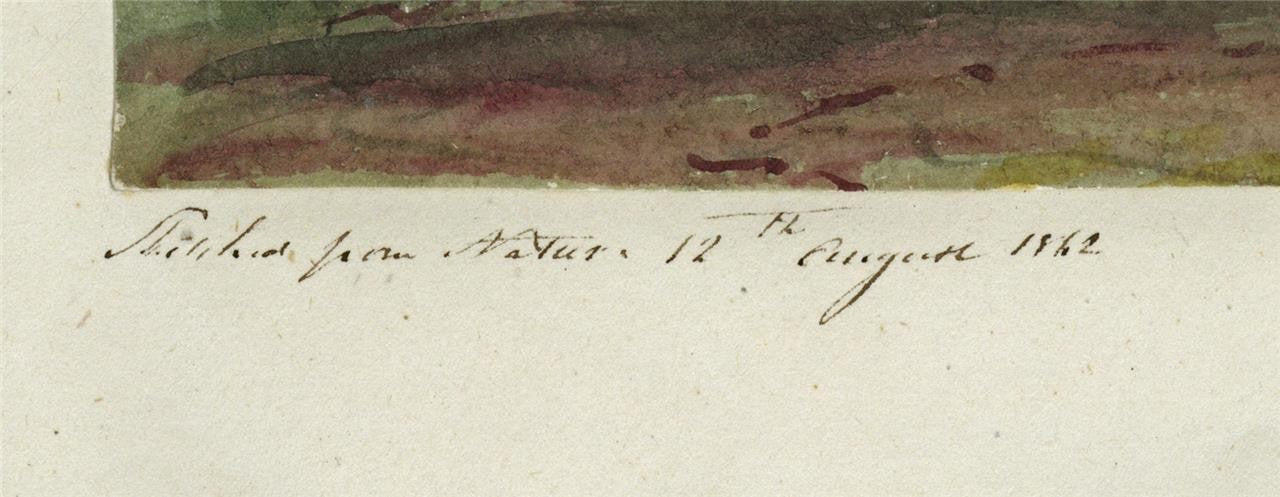 Sketched from Nature 12th August 1862